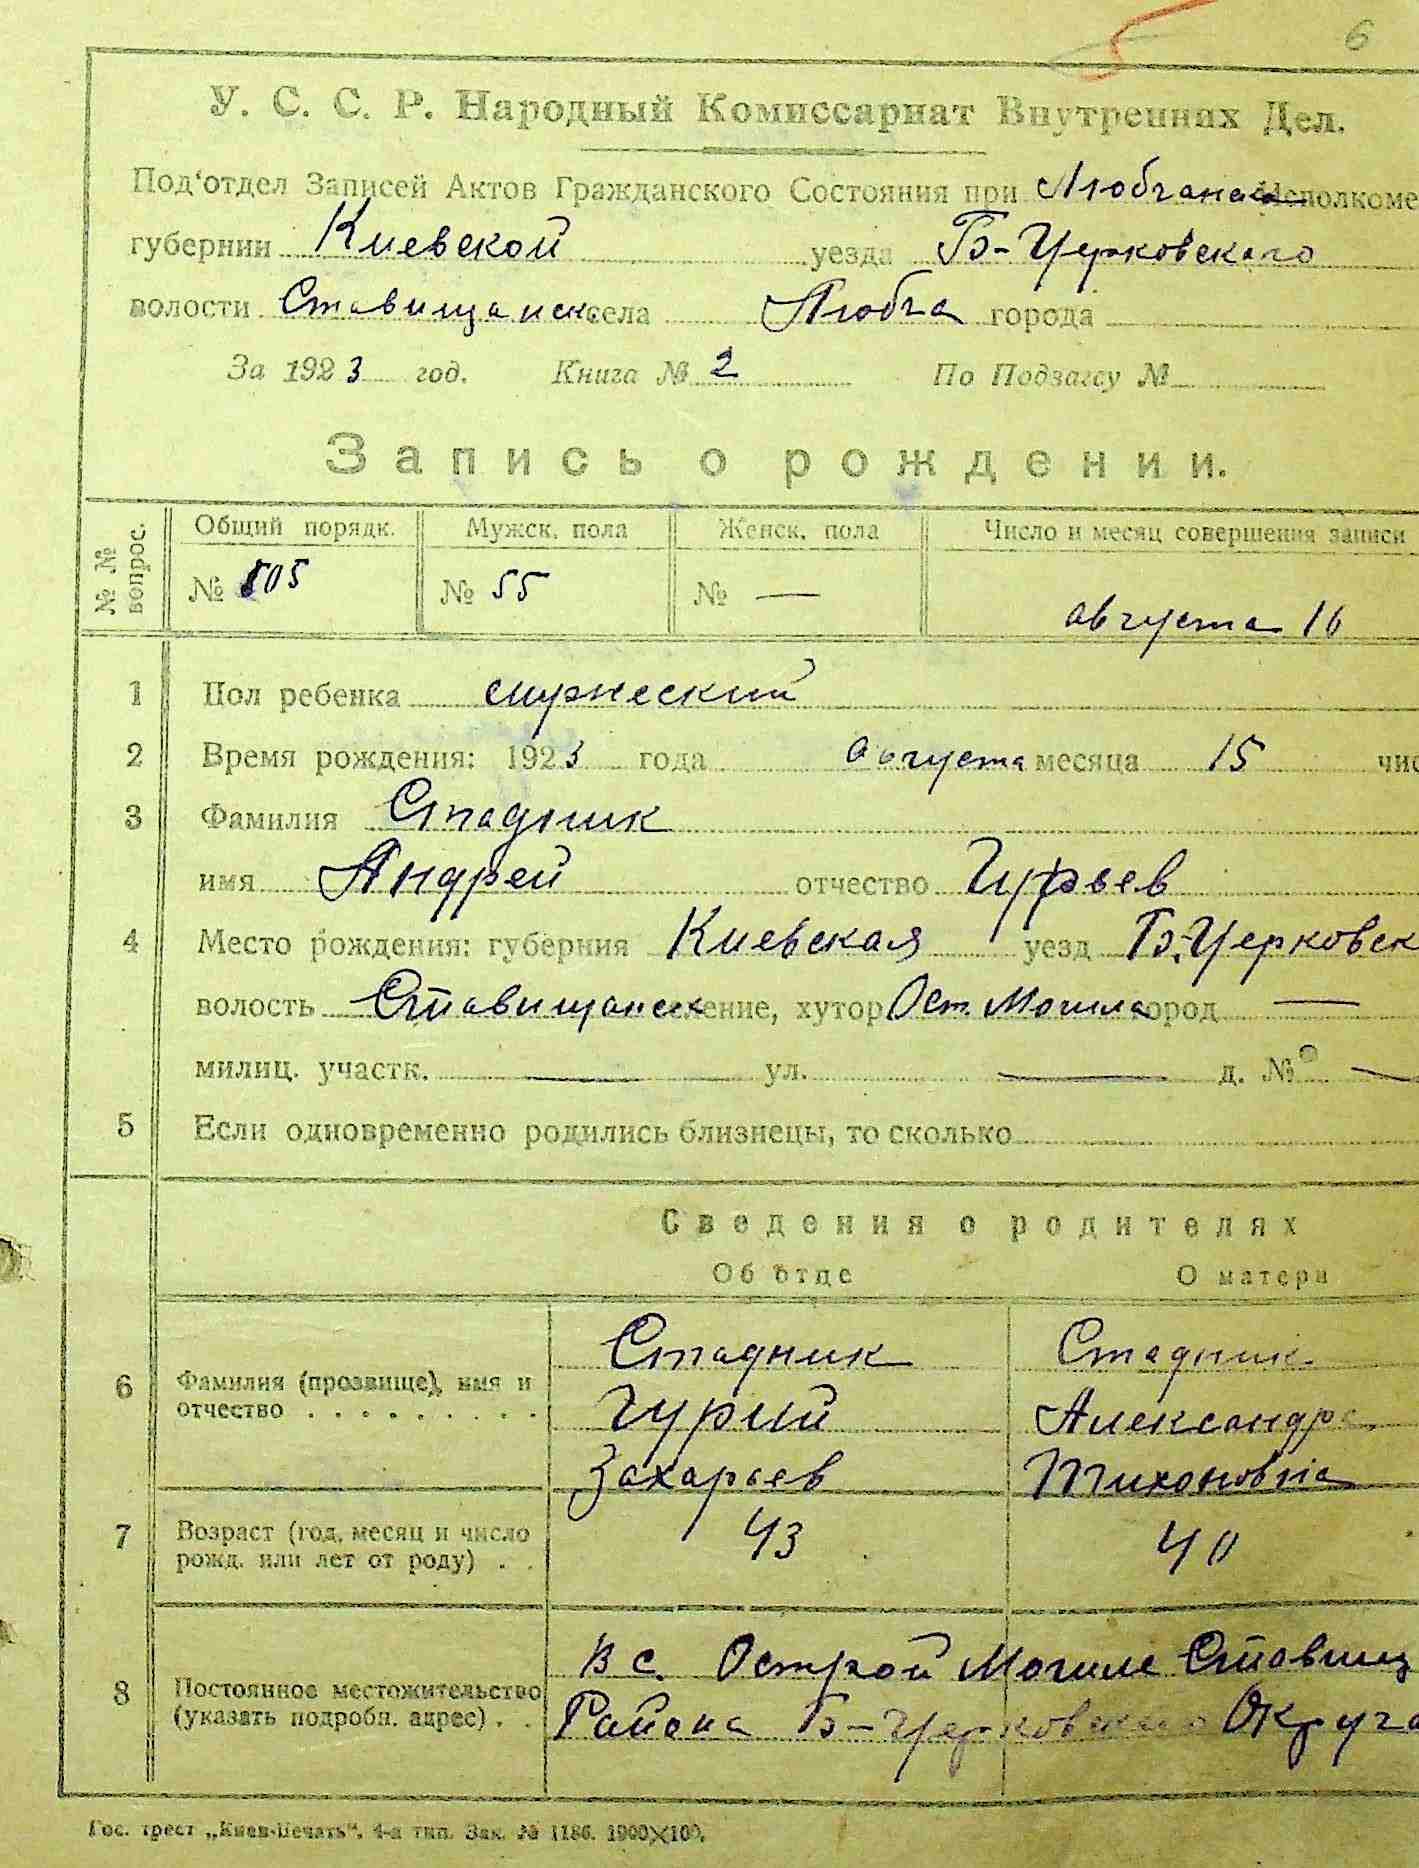 6
У. С. С. Р. Народный Комиссариат Внутренних Дел.
Под‘отдел Записей Актов Гражданского Состояния при Любчанск Исполкоме
губернии Киевской уезда Б-Церковского
волости Ставищанск села Любча города
За 1923 год. Книга № 2 По Подзагсу №
Запись о рождении.
№ № вопрос. Общий порядк. Мужск. пола Женск. пола Число и месяц совершения записи
№ 105 № 55 № — августа 16
1 Пол ребенка мужеский
2 Время рождения: 1923 года августа месяца 15 чис
3 Фамилия Стадник
имя Андрей отчество Гурьев
4 Место рождения: губерния Киевская уезд Б.-Церковск
волость Ставищанск селение, хутор Ост. Могила город —
милиц. участк. — ул. — д. № —
5 Если одновременно родились близнецы, то сколько
Сведения о родителях
Об отце О матери
6 Фамилия (прозвище), имя и отчество . . . . . . . . .
Стадник Стадник
Гурий Александра
Захарьев Тихоновна
7 Возраст (год, месяц и число рожд. или лет от роду) . . 43 40
8 Постоянное местожительство (указать подробн. адрес) . .
В с. Острой Могиле Ставищ
Района Б-Церковского Округа
Гос. трест „Киев-Печать“. 4-я тип. Зак. № 1186. 1900×100.